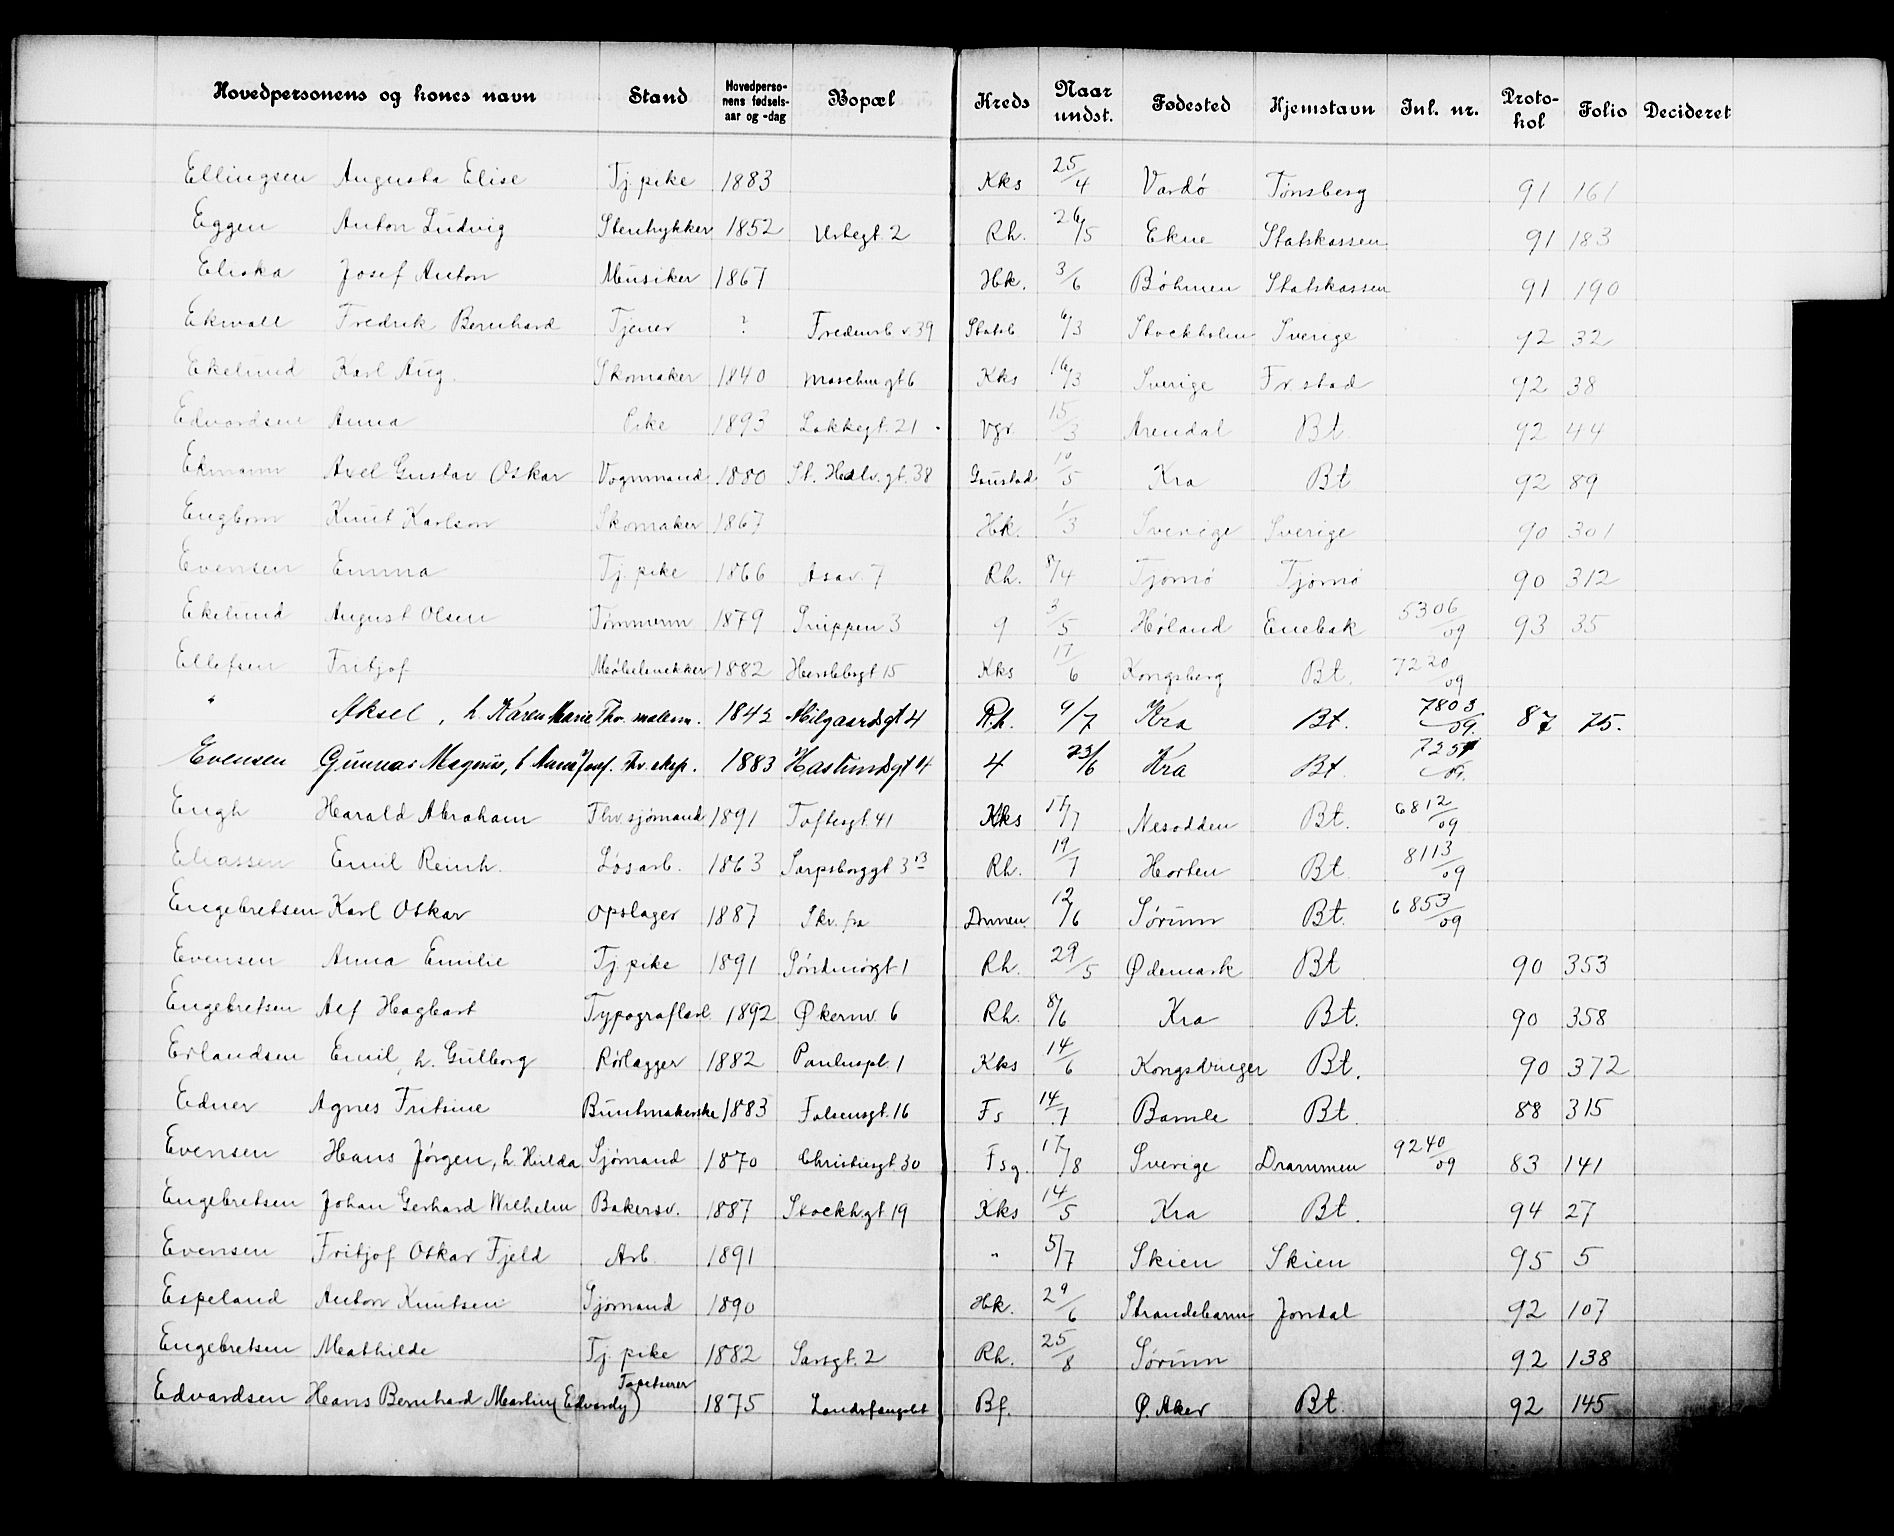 Hovedpersonens og kones navn Stand Hovedperso-nens fødsels-aar og -dag Bopæl Kreds Naar undst. Fødested Hjemstavn Jnl. nr. Proto-kol Folio Decideret
Ellingsen Augusta Elise Tj. pike 1883 Kks 25/4 Vardö Tønsberg 91 161
Eggen Anton Ludvig Stentrykker 1852 Urtegt. 2 Rh. 26/5 Ekne Statskassen 91 183
Eliska Josef Anton Musiker 1867 Hk. 3/6 Bøhmen Statskassen 91 190
Ekwall Fredrik Bernhard Tjener ? Fredensb.v. 39 6/3 Stockholm Sverige 92 32
Ekelund Karl Aug. Skomaker 1840 Maschin gt 6 Kks 16/3 Sverige Fr.stad 92 38
Edvardsen Anna Pike 1893 Lakkegt. 21 Vgr 15/3 Arendal Bt. 92 44
Ekmann Axel Gustav Oskar Vognmand 1880 St. Hallv.gt. 38 Gaustad 10/5 Kra Bt 92 89
Engbom Knut Karlson Skomaker 1867 Hk. 1/3 Sverige Sverige 90 301
Evensen Emma Tj. pike 1866 Asav. 7 Rh. 8/4 Tjömö Tjömö 90 312
Ekelund August Olsen Tømmerm 1879 Snippen 3 9 3/5 Høland Enebak 5306/09 93 35
Ellefsen Fritjof Møbelsnekker 1882 Herslebsgt 15 Kks 17/6 Kongsberg Bt. 7220/09
" Aksel, h. Karen Marie Thv. malerm. 1842 Rh. 9/7 Kra Bt. 7803/09. 87 75.
Evensen Gunnar Magnus, h Anna Josf. Thv. eksp. 1883 4 23/6 Kra Bt. 7251/09.
Engh Harald Abraham Thv. sjømand 1891 Toftesgt. 41 Kks 17/7 Nesodden Bt. 6812/09
Eliassen Emil Reinh. Løsarb. 1863 Sarpsborggt 3 B Rh. 19/7 Horten Bt. 8113/09
Engebretsen Karl Oskar Opslager 1887 Drmen. 12/6 Sørum Bt. 6853/09
Evensen Anna Emilie Tj. pike 1891 Söndmörgt 1 Rh. 29/5 Ødemark Bt 90 353
Engebretsen Alf Hagbart Typograflærl. 1892 Økernv. 6 Rh. 8/6 Kra Bt. 90 358
Erlandsen Emil, h. Gulborg Rørlægger 1882 Pauluspl. 1 Kks 14/6 Kongsvinger Bt. 90 372
Edner Agnes Fritsine Buntmakerske 1883 Falsensgt. 16 Fs 14/7 Bamle Bt. 88 315
Evensen Hans Jørgen, h. Hulda Sjømand 1870 Christiesgt 30 Fsg. 17/8 Sverige Drammen 9240/09 83 141
Engebretsen Johan Gerhard Wilhelm Bakersv. 1887 Stockhgt 19 Kks 14/5 Kra Bt. 94 27
Evensen Fritjof Oskar Fjeld Arb. 1891 " 5/7 Skien Skien 95 5
Espeland Anton Knutsen Sjömand 1890 Hk. 29/6 Strandebarm Jondal 92 107
Engebretsen Mathilde Tj. pike 1882 Sarsgt. 2 Rh. 25/8 Sörum 92 138
Edvardsen Hans Bernhard Martin (Edvardy) Tapetserer 1875 Landsfængslet Bf. Ø. Aker Bt. 92 145